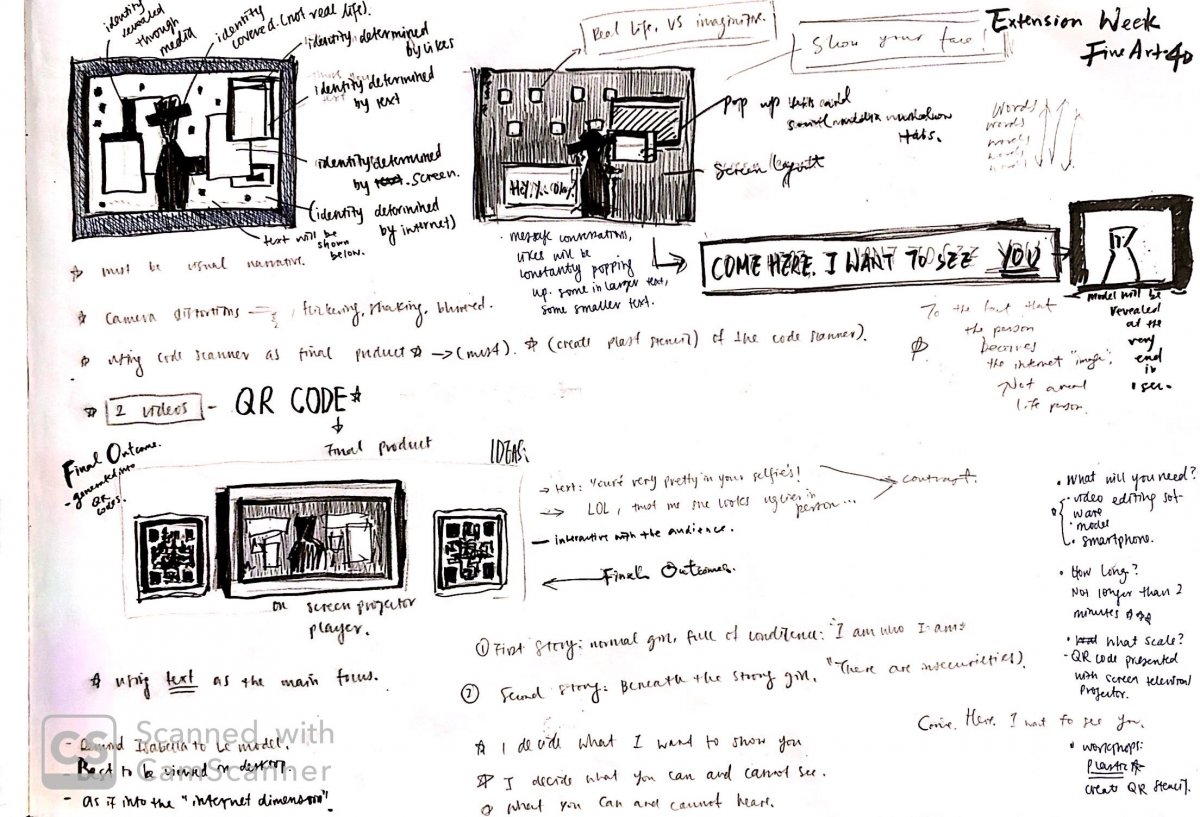 Extension Week
Fine Art 4D
identity
revealed
through
media
identity
covered. (not real life).
identity determined
by likes
identity determined
by text
identity determined
by screen.
(identity determined
by internet)
text will be
shown
below.
Real life VS imaginative.
Show your face!
words
words
words
words
words
Pop up
tabs.
Screen layout
Hey! You Okay?
· message conversations,
likes will be
constantly popping
up. some in larger text,
some smaller text.
COME HERE. I WANT TO SEE YOU
model will be
revealed
at the
very
end in
1 sec.
To the fact that
the person
becomes
the internet "image".
Not a real
life person.
must be visual narrative.
camera distortions, flickering, shaking, blurred.
using code scanner as final product → (must). (create plastic stencil) of the code scanner).
2 videos - QR CODE
Final product
Final Outcome.
- generated into
QR
codes.
on screen projector
player.
IDEAS:
→ text: "You're very pretty in your selfie's!
→ LOL, trust me she looks uglier in
person...
contrast.
— interactive with the audience.
Final Outcomes.
① First Story: normal girl, full of confidence: "I am who I am"
② Second Story: Beneath the strong girl, "There are insecurities).
using text as the main focus.
- remind Isabella to be model.
- Best to be viewed on desktop.
- as if into the "internet dimension".
I decide what I want to show you
I decide what you can and cannot see.
what you can and cannot hear.
· What will you need?
· video editing soft-
ware
· model
· smartphone.
· How long?
Not longer than 2
minutes
· what scale?
- QR code presented
with screen television
Projector.
Come. Here. I want to see you.
· workshops:
Plastic
create QR stencil.
CS Scanned with
CamScanner